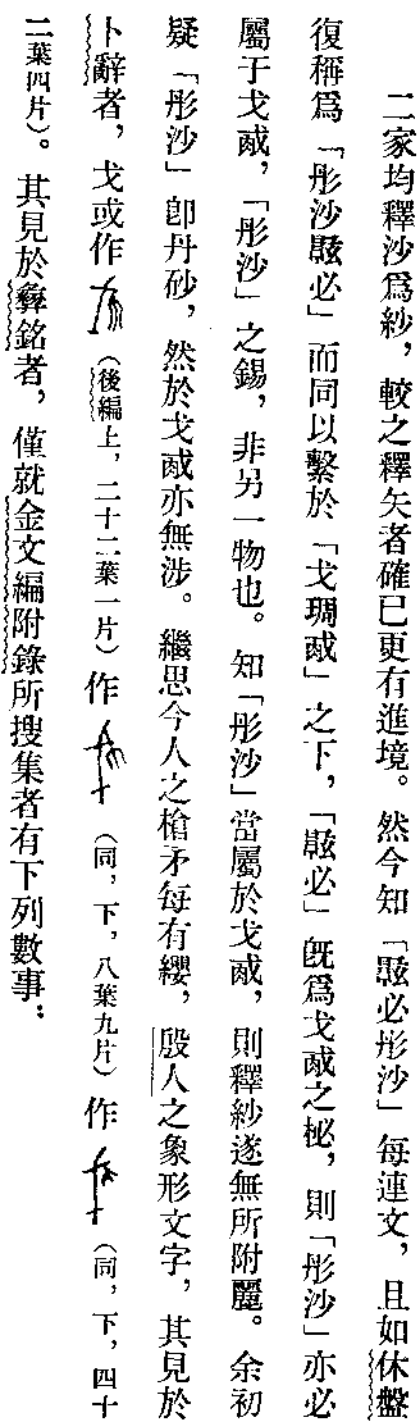 二家均釋沙爲紗，較之釋矢者確已更有進境。然今知「㱾必彤沙」每連文，且如休盤
復稱爲「彤沙㱾必」而同以繫於「戈琱㦵」之下，「㱾必」既爲戈㦵之柲，則「彤沙」亦必
屬于戈㦵，「彤沙」之錫，非另一物也。知「彤沙」當屬於戈㦵，則釋紗遂無所附麗。余初
疑「彤沙」卽丹砂，然於戈㦵亦無涉。繼思今人之槍矛每有纓，殷人之象形文字，其見於
卜辭者，戈或作（後編上，二十二葉一片）作（同，下，八葉九片）作（同，下，四十
二葉四片）。其見於彝銘者，僅就金文編附錄所搜集者有下列數事：